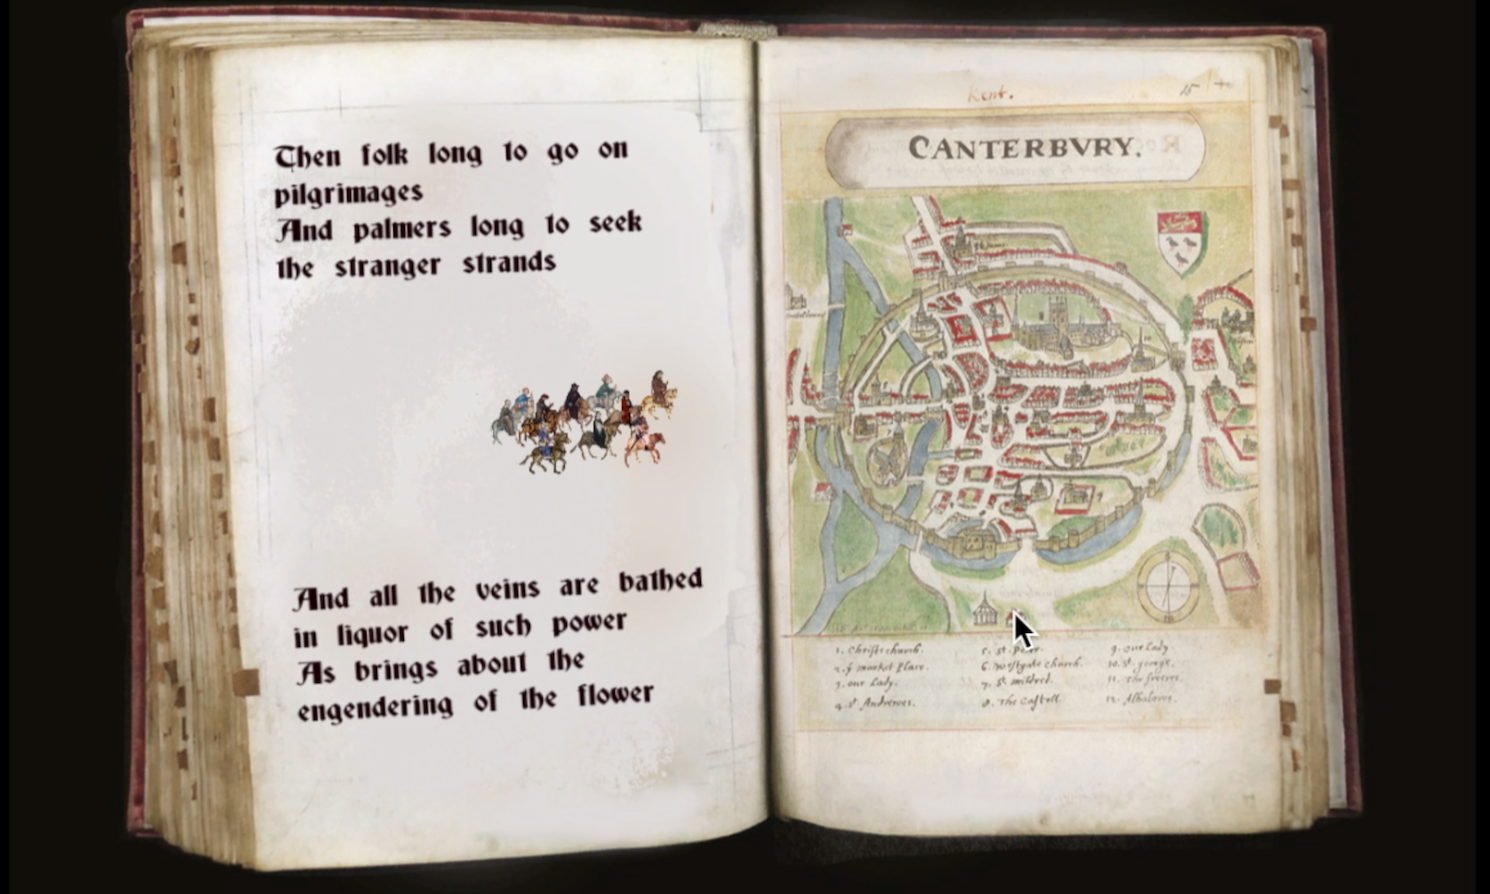 Then folk long to go on
pilgrimages
And palmers long to seek
the stranger strands
And all the veins are bathed
in liquor of such power
As brings about the
engendering of the flower
Kent.
15
CANTERBVRY.
1. Christchurch.
2. ye market place.
3. our Lady.
4. st Andrewes.
5. st. Peter.
6. Westgate church.
7. st mildred.
8. The Castell
9. our Lady
10. st. george.
11. The freers.